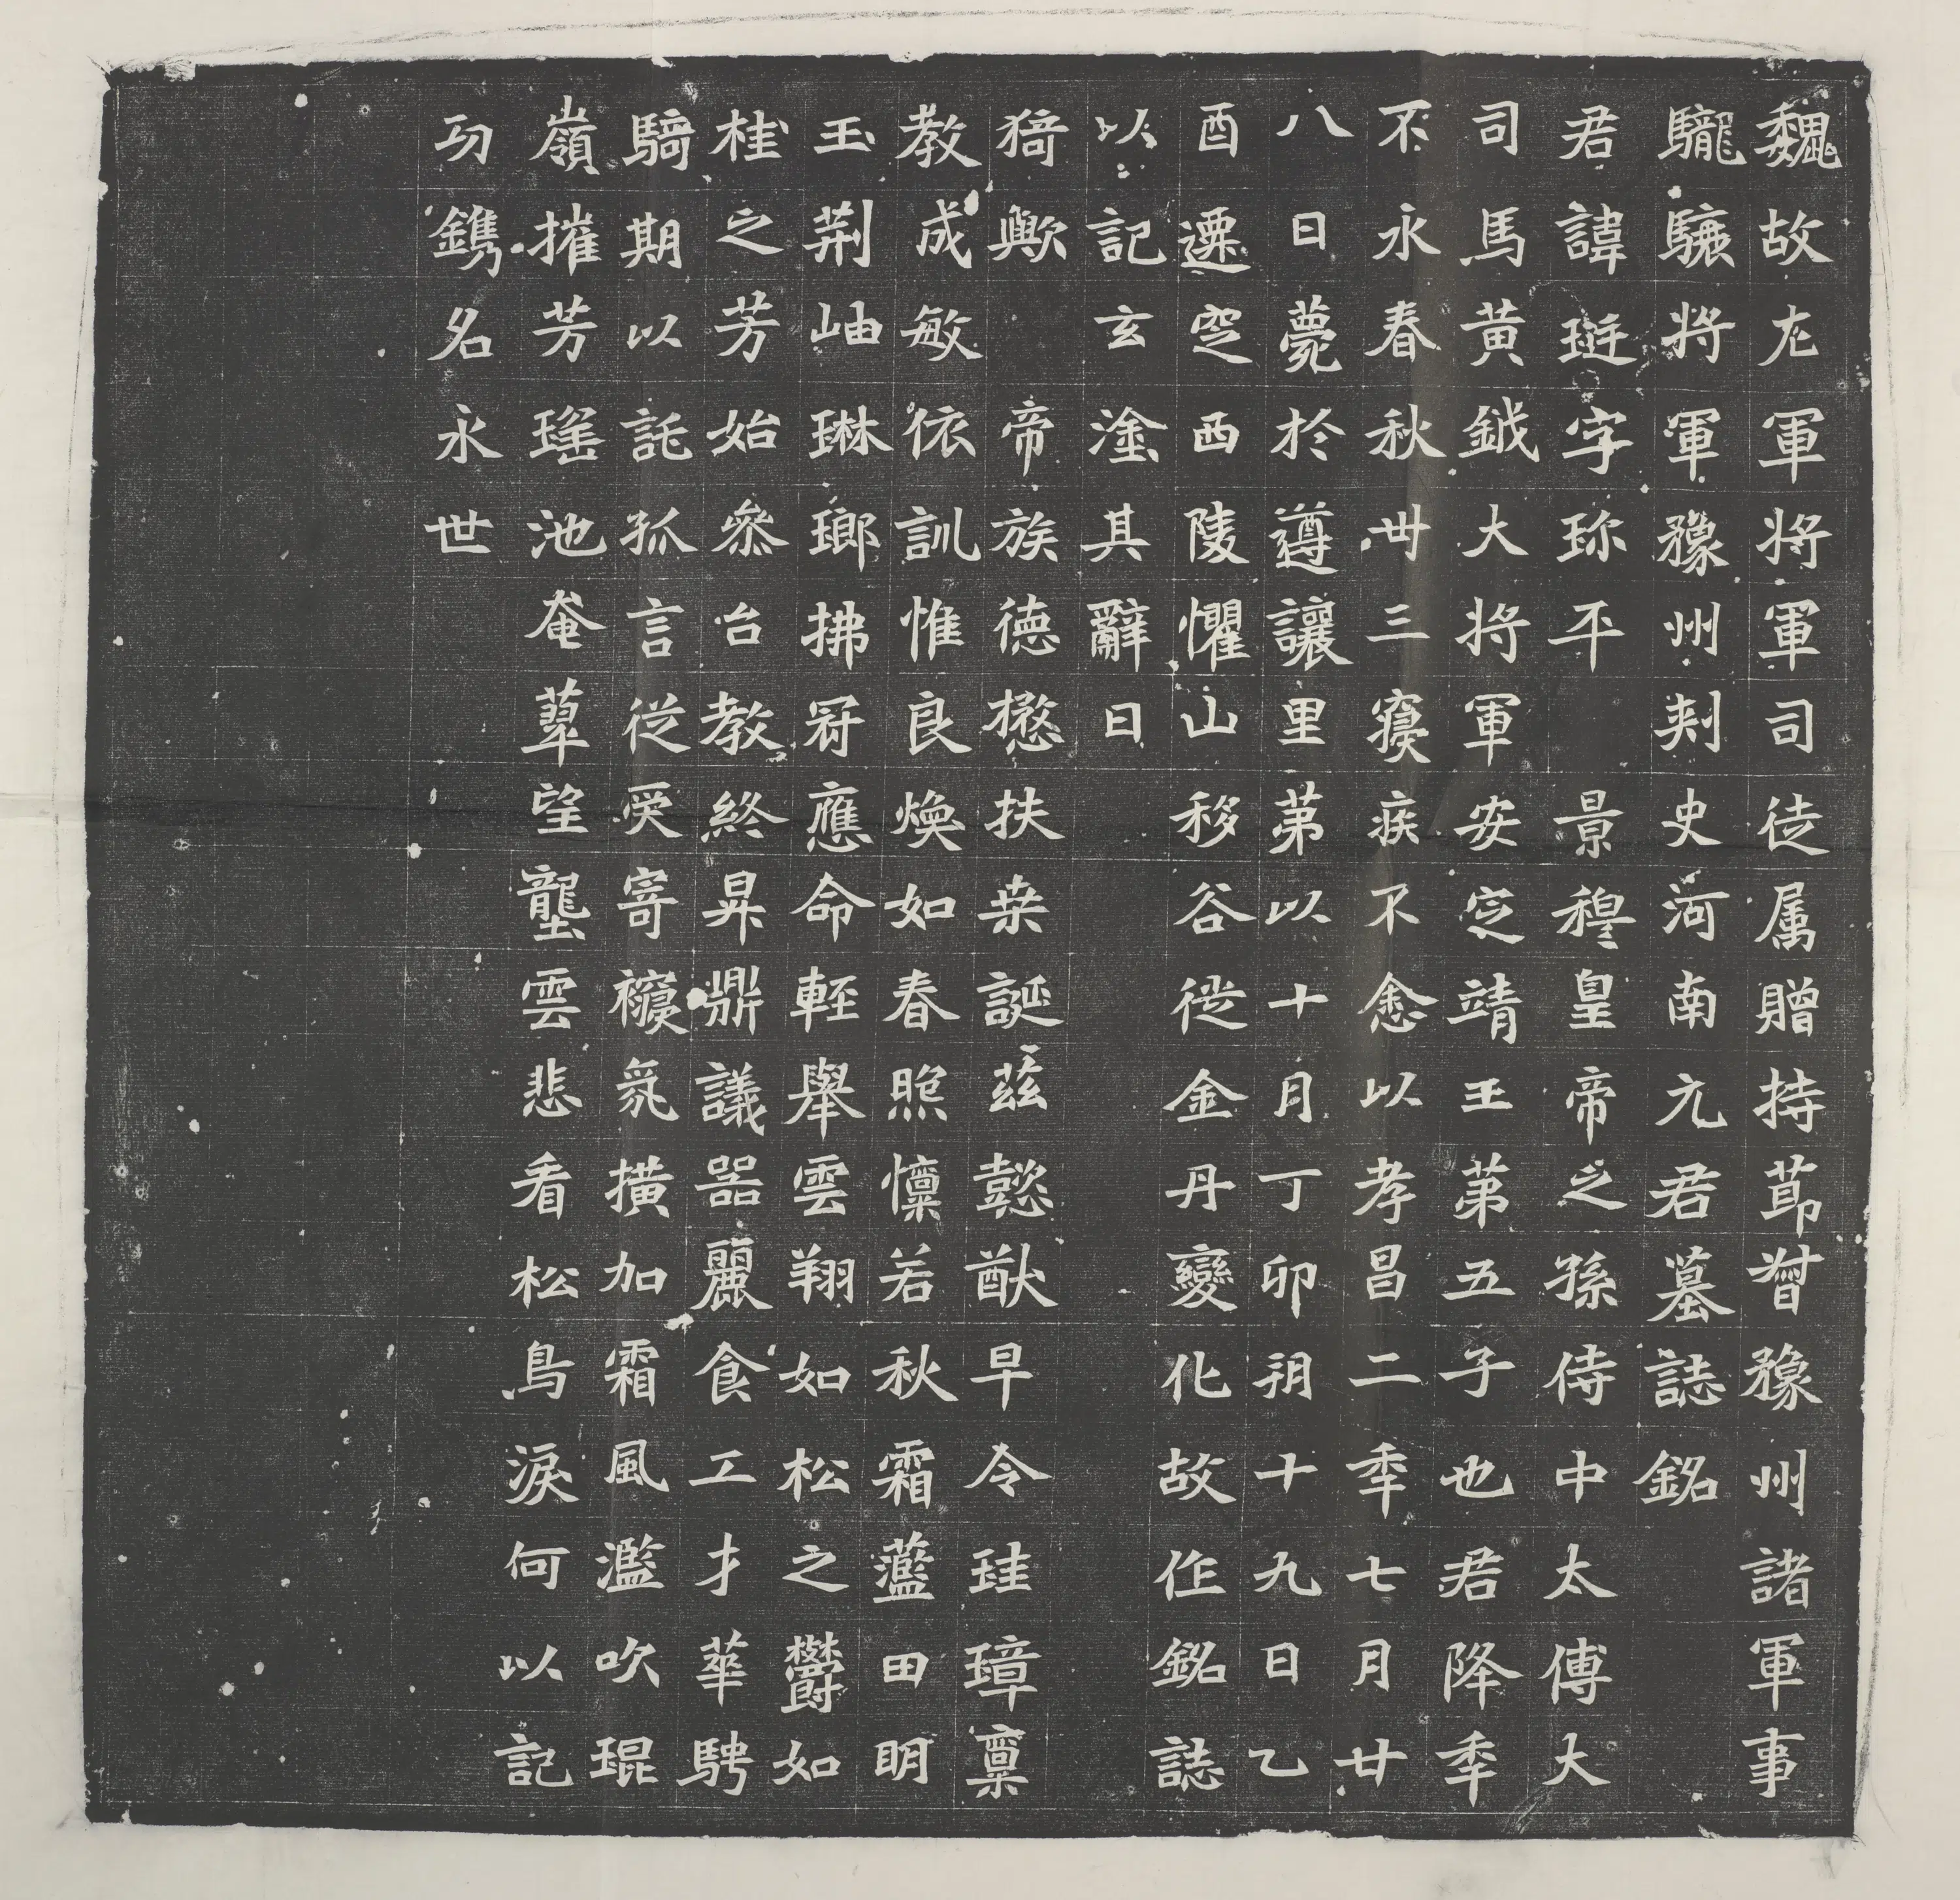 魏故左軍將軍司徒属贈持莭督豫州諸軍事
驣驤將軍豫州刺史河南元君墓誌銘
君諱珽字珎平景穆皇帝之孫侍中太傅大
司馬黃鉞大將軍安定靖王第五子也君降秊
不永春秋丗三寢疾不悆以孝昌二秊七月廿
八日薨於遵讓里第以十月丁卯朔十九日乙
酉遷窆西陵懼山移谷徙金丹變化故作銘誌
以記玄塗其辭曰
猗歟帝族德懋扶桒誕茲懿猷早令珪璋稟
教成敏依訓惟良煥如春煦懍若秋霜藍田明
玉荊岫琳瑯拂冠應命輕舉雲翔如松之鬱如
桂之芳始叅台教終昇鼎議器麗食工才華騁
騎期以託孤言從受寄祲氛橫加霜風濫吹琨
嶺摧芳瑤池奄萃望壟雲悲看松鳥淚何以記
功鐫名永世